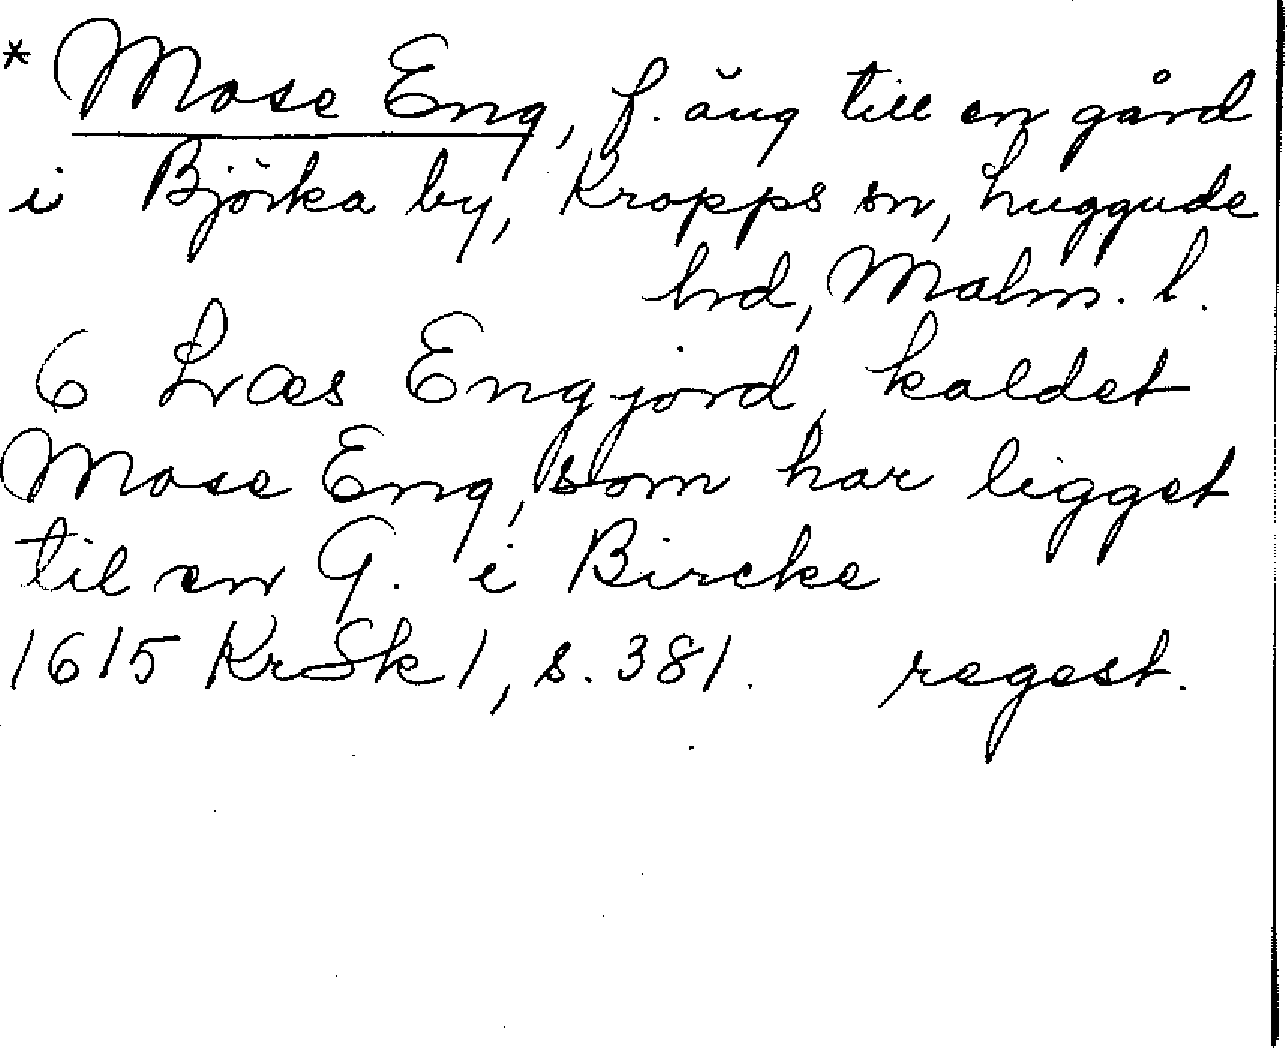 * Mose Eng, f. äng till en gård
i Björka by, Kropps sn, Luggude
hrd, Malm. l.
6 Læs Engjord, kaldet
Mose Eng, som har ligget
til en G. i Bircke
1615 KrSk 1, s. 381. regest.